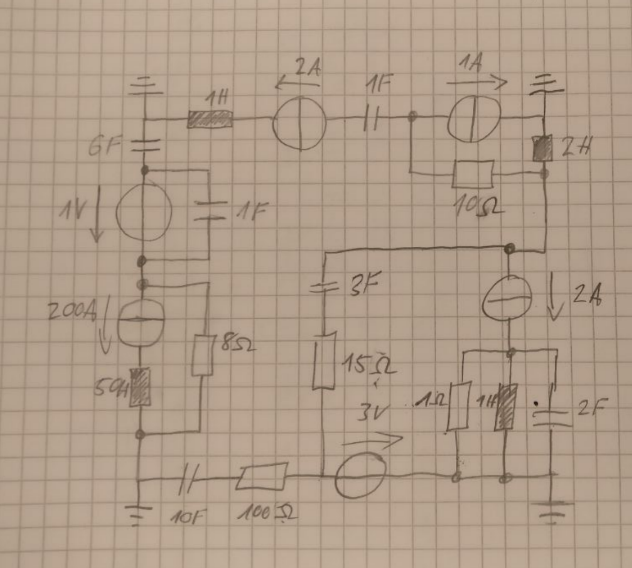 2A
1F
1A
1H
6F
2H
1V
1F
10Ω
200A
3F
2A
8Ω
15Ω
50H
3V
1Ω
1H
2F
10F
100Ω